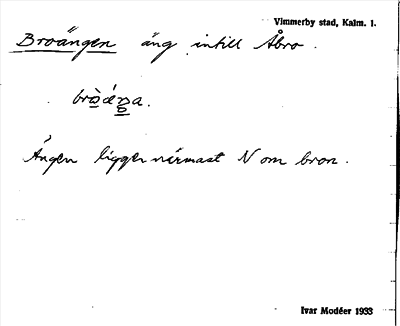 Vimmerby stad, Kalm. l.
Broängen äng intill Åbro.
Ängen ligger närmast N om bron.
Ivar Modéer 1933